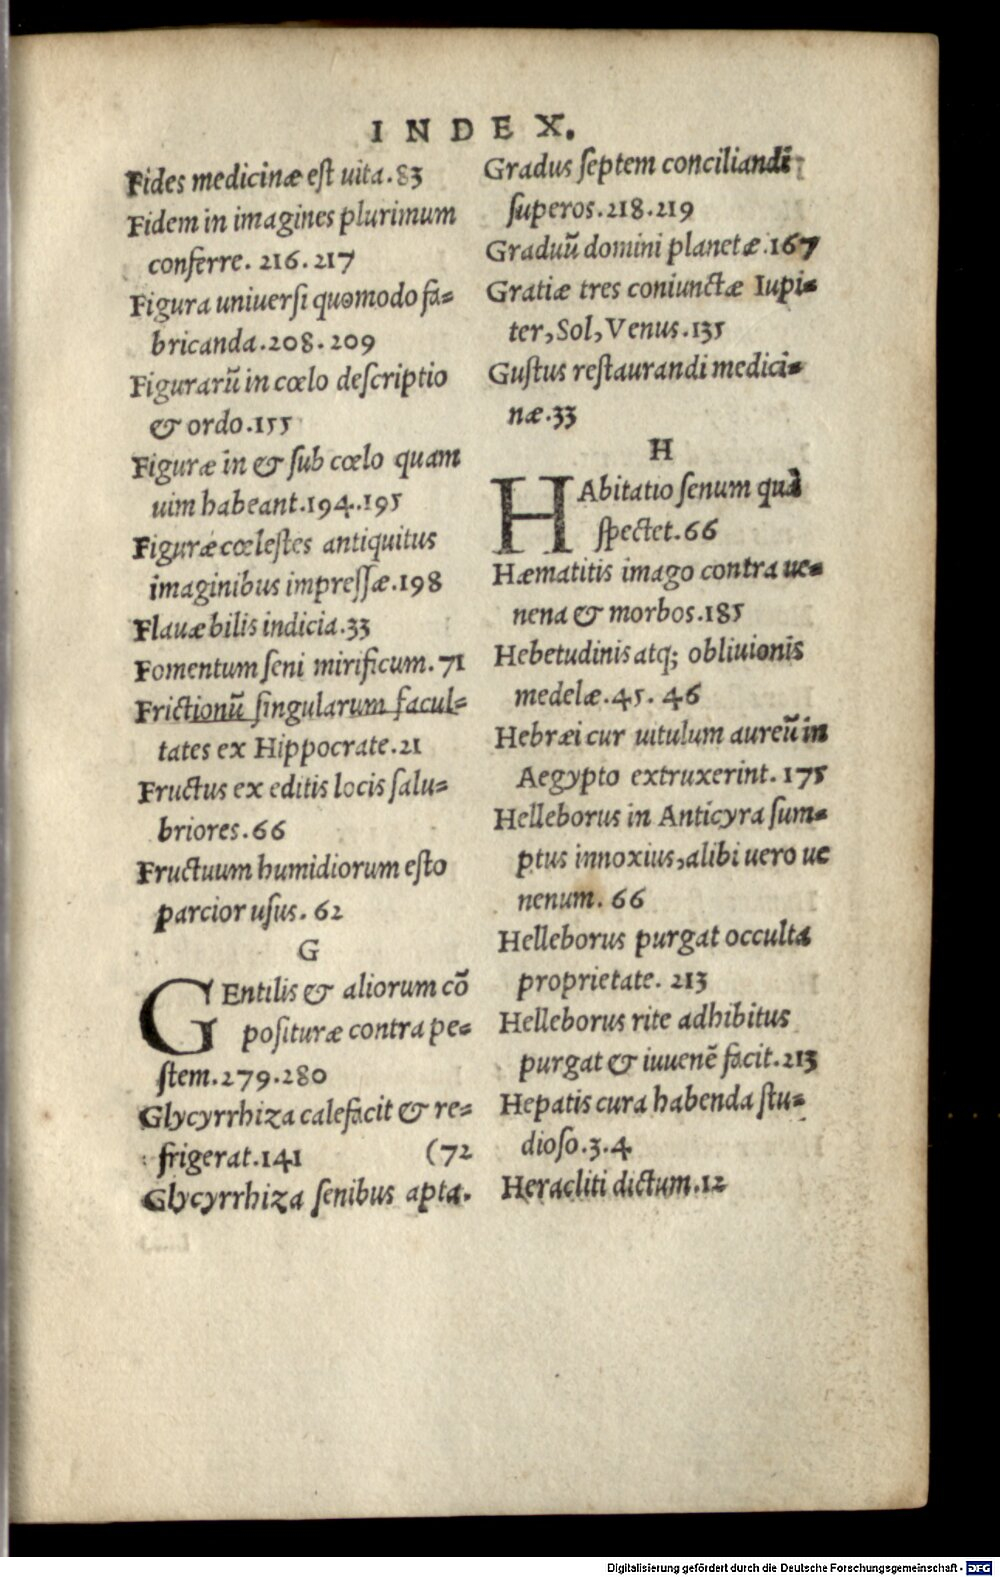 INDEX.
Fides medicinæ est uita.83
Fidem in imagines plurimum
conferre. 216.217
Figura uniuersi quomodo fa=
bricanda.208.209
Figurarũ in cœlo descriptio
& ordo.155
Figuræ in & sub cœlo quam
uim habeant.194.195
Figuræ cœlestes antiquitus
imaginibus impressæ.198
Flauæ bilis indicia.33
Fomentum seni mirificum.71
Frictionũ singularum facul=
tates ex Hippocrate.21
Fructus ex editis locis salu=
briores.66
Fructuum humidiorum esto
parcior usus. 62
G
GEntilis & aliorum cõ
posituræ contra pe=
stem.279.280
Glycyrrhiza calefacit & re=
frigerat.141 (72
Glycyrrhiza senibus apta.
Gradus septem conciliandi
superos.218.219
Graduũ domini planetæ.167
Gratiæ tres coniunctæ Iupi=
ter,Sol,Venus.135
Gustus restaurandi medici=
næ.33
H
HAbitatio senum quà
spectet.66
Hæmatitis imago contra ue=
nena & morbos.185
Hebetudinis atq; obliuionis
medelæ.45.46
Hebræi cur uitulum aureũ in
Aegypto extruxerint.175
Helleborus in Anticyra sum=
ptus innoxius,alibi uero ue
nenum. 66
Helleborus purgat occulta
proprietate. 213
Helleborus rite adhibitus
purgat & iuuenẽ facit.213
Hepatis cura habenda stu=
dioso.3.4
Heracliti dictum.12
Digitalisierung gefördert durch die Deutsche Forschungsgemeinschaft - DFG